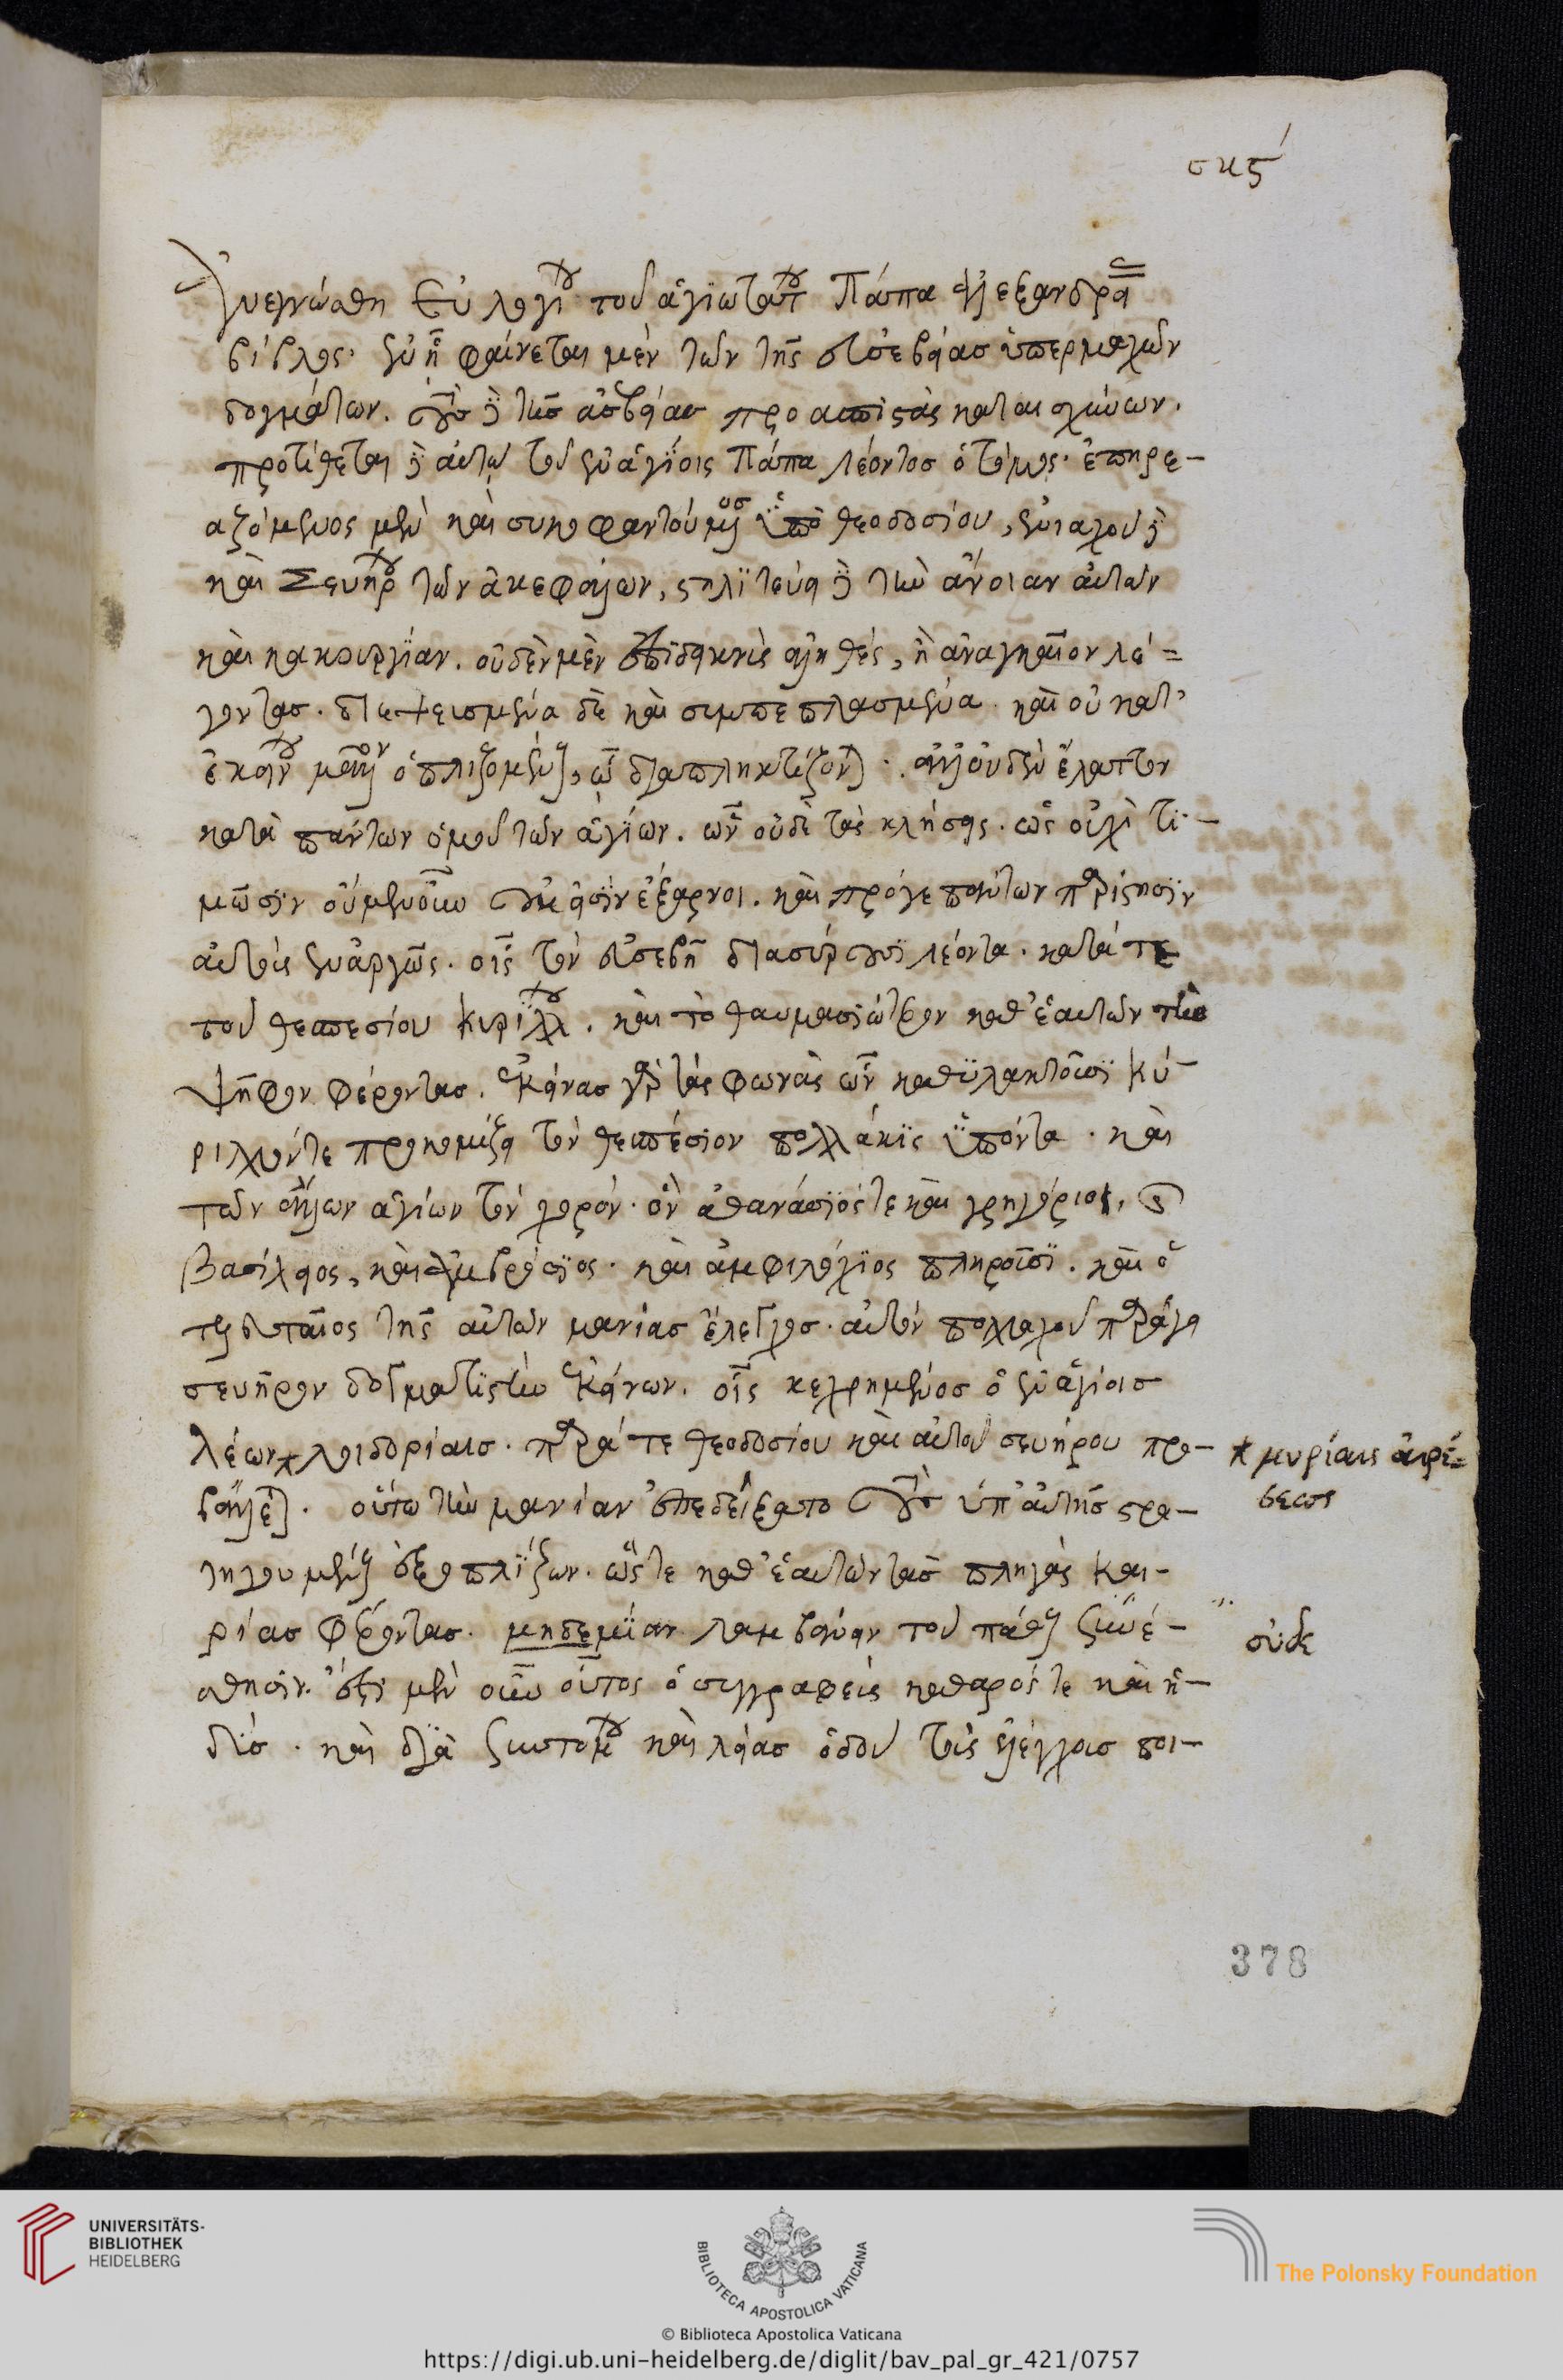 σκϛ´
Ἀνεγνώσθη Εὐλογίου τοῦ ἁγιωτάτου Πάπα ἀλεξανδρείας
βίβλος· ἐν ᾗ φαίνεται μὲν τῶν τῆς εὐσεβείας ὑπερμαχῶν
δογμάτων. τοὺς δὲ τῆς ἀσεβείας προασπιστὰς καταισχύνων.
προτίθεται δὲ αὐτῶ τοῦ ἐν ἁγίοις Πάπα λέοντος ὁ τόμος· ἐπηρε-
αζόμενος μὲν καὶ συκοφαντούμενος ὑπὸ θεοδοσίου, ἐνιαχοῦ δὲ
καὶ Σευήρου τῶν ἀκεφάλων, στηλιτεύει δὲ τὴν ἄνοιαν αὐτῶν
καὶ κακουργίαν. οὐδὲν μὲν ἐπιδεικνὺς ἀληθές, ἢ ἀναγκαῖον λέ=
γοντας. διεψευσμένα δὲ καὶ συμπεπλασμένα. καὶ οὐ κατ'
ἐκείνου μόνον ὁπλιζομένους, ὦ διαπληκτίζονται. ἀλλ' οὐδὲν ἔλαττον
κατὰ πάντων ὁμοῦ τῶν ἁγίων. ὧν οὐδὲ τὰς κλήσεις. ὡς οὐχὶ τι-
μῶσιν οὐμενοῦν εἰσὶν ἔξαρνοι. καὶ πρόγε πάντων παρίστησιν
αὐτοὺς ἐναργῶς. οἷς τὸν εὐσεβῆ διασύρουσι λέοντα. κατά τε
τοῦ θεσπεσίου κυρίλλου. καὶ τὸ θαυμασιώτερον καθ' ἑαυτῶν τὴν
ψῆφον φέροντας. ἐκείνας γὰρ τὰς φωνὰς ὧν καθυλακτοῦσι Κύ-
ριλλόν τε προκομίζει τὸν θεσπέσιον πολλάκις εἰπόντα. καὶ
τῶν ἄλλων ἁγίων τὸν χορόν. ὃν ἀθανάσιός τε καὶ γρηγόριος, καὶ
Βασίλειος, καὶ ἀμβρόσιος. καὶ ἀμφιλόχιος πληροῦσι. καὶ ὁ
τελευταῖος τῆς αὐτῶν μανίας ἔλεγχος. αὐτὸν πολλαχοῦ παράγει
σευῆρον δογματιστὴν ἐκείνων. οἷς κεχρημένος ὁ ἐν ἁγίοις
λέων * λοιδορίαις. παρά τε θεοδοσίου καὶ αὐτοῦ σευήρου προ-
βάλλεται. οὕτω τὴν μανίαν ἐπεδείξατο τοὺς ὑπ' αὐτῆς στρα-
τηγουμένους ἐξοπλίζων. ὥστε καθ' ἑαυτῶν τὰς πληγὰς και-
ρίας φέροντας. μηδεμίαν λαμβάνειν τοῦ πάθους συναί-
σθησιν. ἔστι μὲν οὖν οὗτος ὁ συγγραφεὺς καθαρός τε καὶ ἡ-
δύς. καὶ διὰ συντόμου καὶ λείας ὁδοῦ τοὺς ἐλέγχους ποι-
* μυρίαις αἱρέ=
σεως
οὐδε
378
UNIVERSITÄTS-
BIBLIOTHEK
HEIDELBERG
BIBLIOTECA APOSTOLICA VATICANA
The Polonsky Foundation
© Biblioteca Apostolica Vaticana
https://digi.ub.uni-heidelberg.de/diglit/bav_pal_gr_421/0757